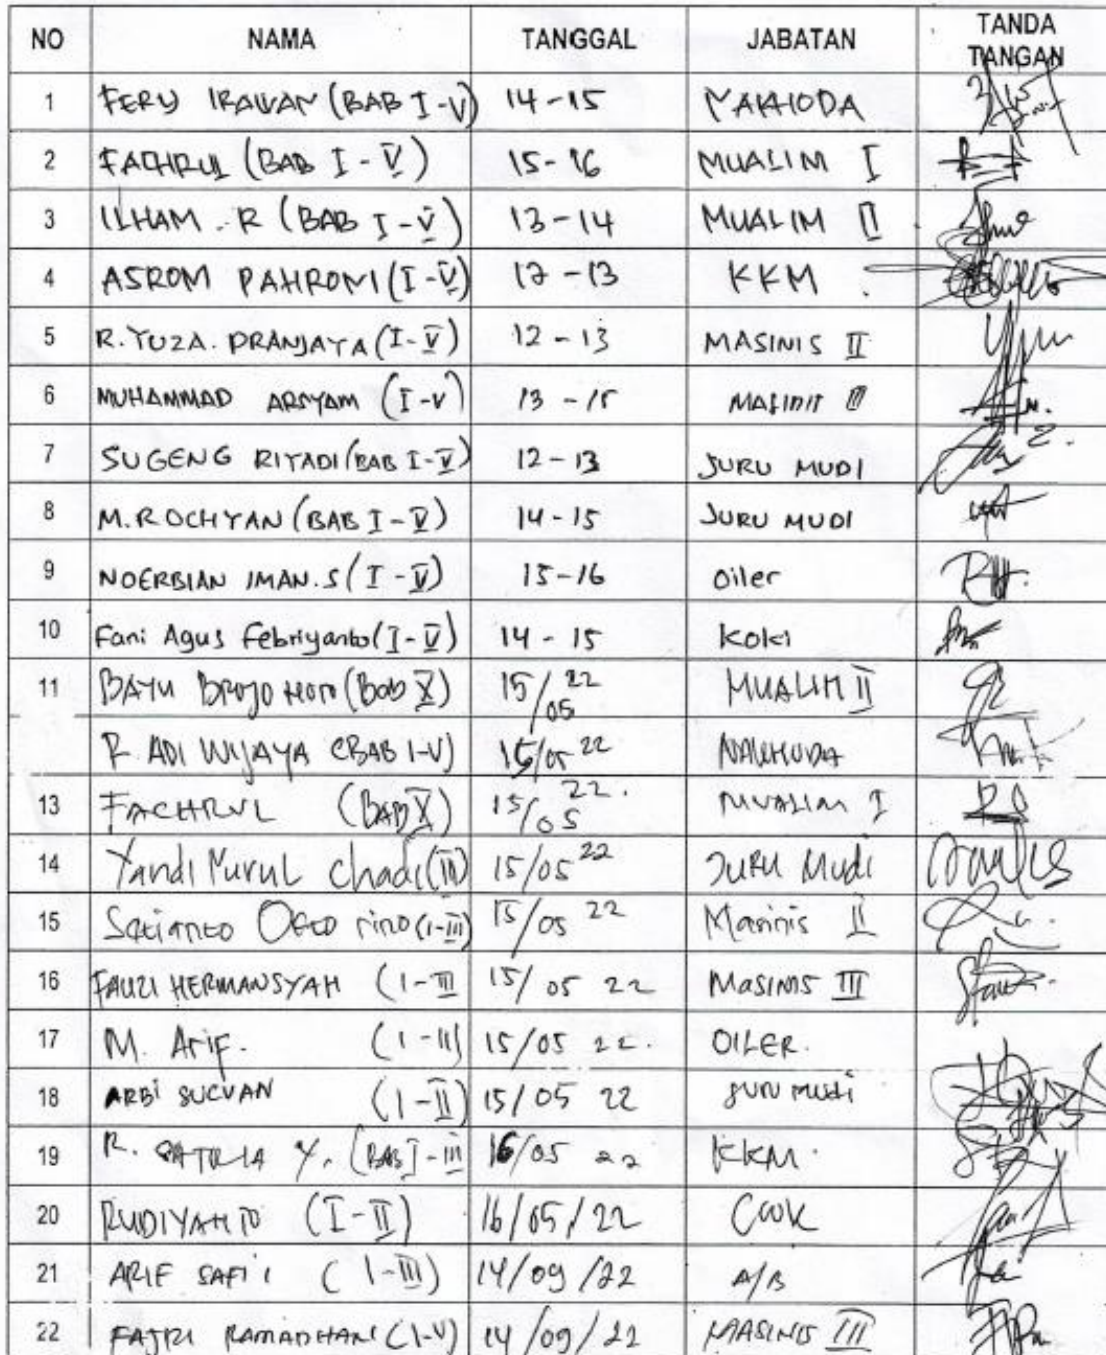 NO NAMA TANGGAL JABATAN TANDA TANGAN
1 FERY IRAWAN (BAB I-V) 14-15 NAKHODA
2 FACHRUL (BAB I-V) 15-16 MUALIM I
3 ILHAM.R (BAB I-V) 13-14 MUALIM II
4 ASROM PAHRONI (I-V) 12-13 KKM
5 R.YUZA.PRANJAYA (I-V) 12-13 MASINIS II
6 MUHAMMAD ARSYAM (I-V) 13-15 MASINIS III
7 SUGENG RIYADI (BAB I-V) 12-13 JURU MUDI
8 M.ROCHYAN (BAB I-V) 14-15 JURU MUDI
9 NOERBIAN IMAN.S (I-V) 15-16 Oiler
10 Fani Agus Febriyanto (I-V) 14-15 Koki
11 BAYU BROJO (Bab X) 15/05 22 MUALIM II
R ADI WIJAYA (BAB I-V) 15/05 22 NAKHODA
13 FACHRUL (BAB X) 15/05 22. MUALIM I
14 Yandi Nurul Chadi (III) 15/05 22 Juru Mudi
15 Setianto Octo rino (I-III) 15/05 22 Masinis II
16 FAUZI HERMANSYAH (I-III 15/05 22 Masinis III
17 M. Arif. (I-III) 15/05 22. OILER.
18 ARBI SUCVAN (I-II) 15/05 22 JURU MUDI
19 R. SATRIA Y. (BAB I-III 16/05 22 KKM.
20 RUDIYANTO (I-II) 16/05/22 Cook
21 ARIF SAFI'I (I-III) 14/09/22 A/B
22 FAJRI RAMADHAN (I-V) 14/09/22 MASINIS III